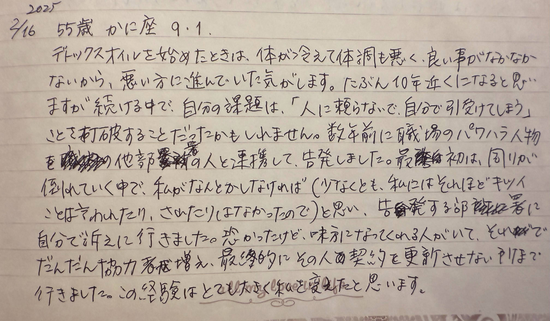 2025
2/16 55歳 かに座 9.1.
デトックスオイルを始めたときは、体が冷えて体調も悪く、良い事がなかなか
ないから、悪い方に進んでいた気がします。たぶん10年近くになると思い
ますが続ける中で、自分の課題は、「人に頼らないで、自分で引受けてしまう」
ことを打破することだったかもしれません。数年前に職場のパワハラ人物
を 他部署の人と連携して、告発しました。最初は、周りが
倒れていく中で、私がなんとかしなければ(少なくとも、私にはそれほどキツイ
ことは言われたり、されたりはなかったので)と思い、告発する部署に
自分で訴えに行きました。恐かったけど、味方になってくれる人がいて、それ
だんだん協力者も増え、最終的にその人の契約を更新させない所まで
行きました。この経験はとても大きく私を変えたと思います。